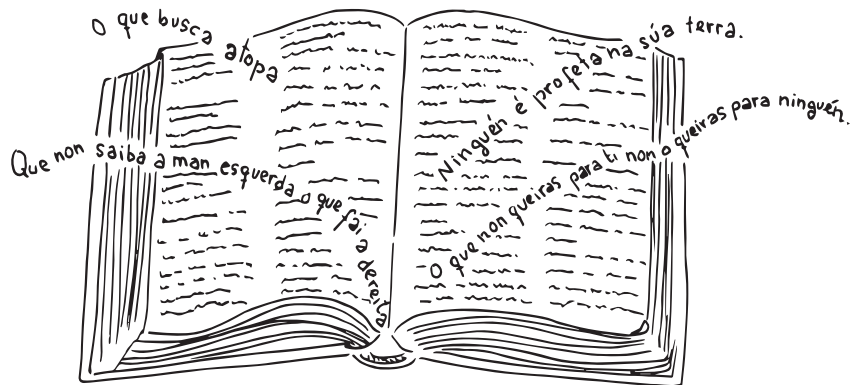 O que busca atopa
Que non saiba a man esquerda o que fai a dereita
Ninguén é profeta na súa terra.
O que non queiras para ti non o queiras para ninguén.